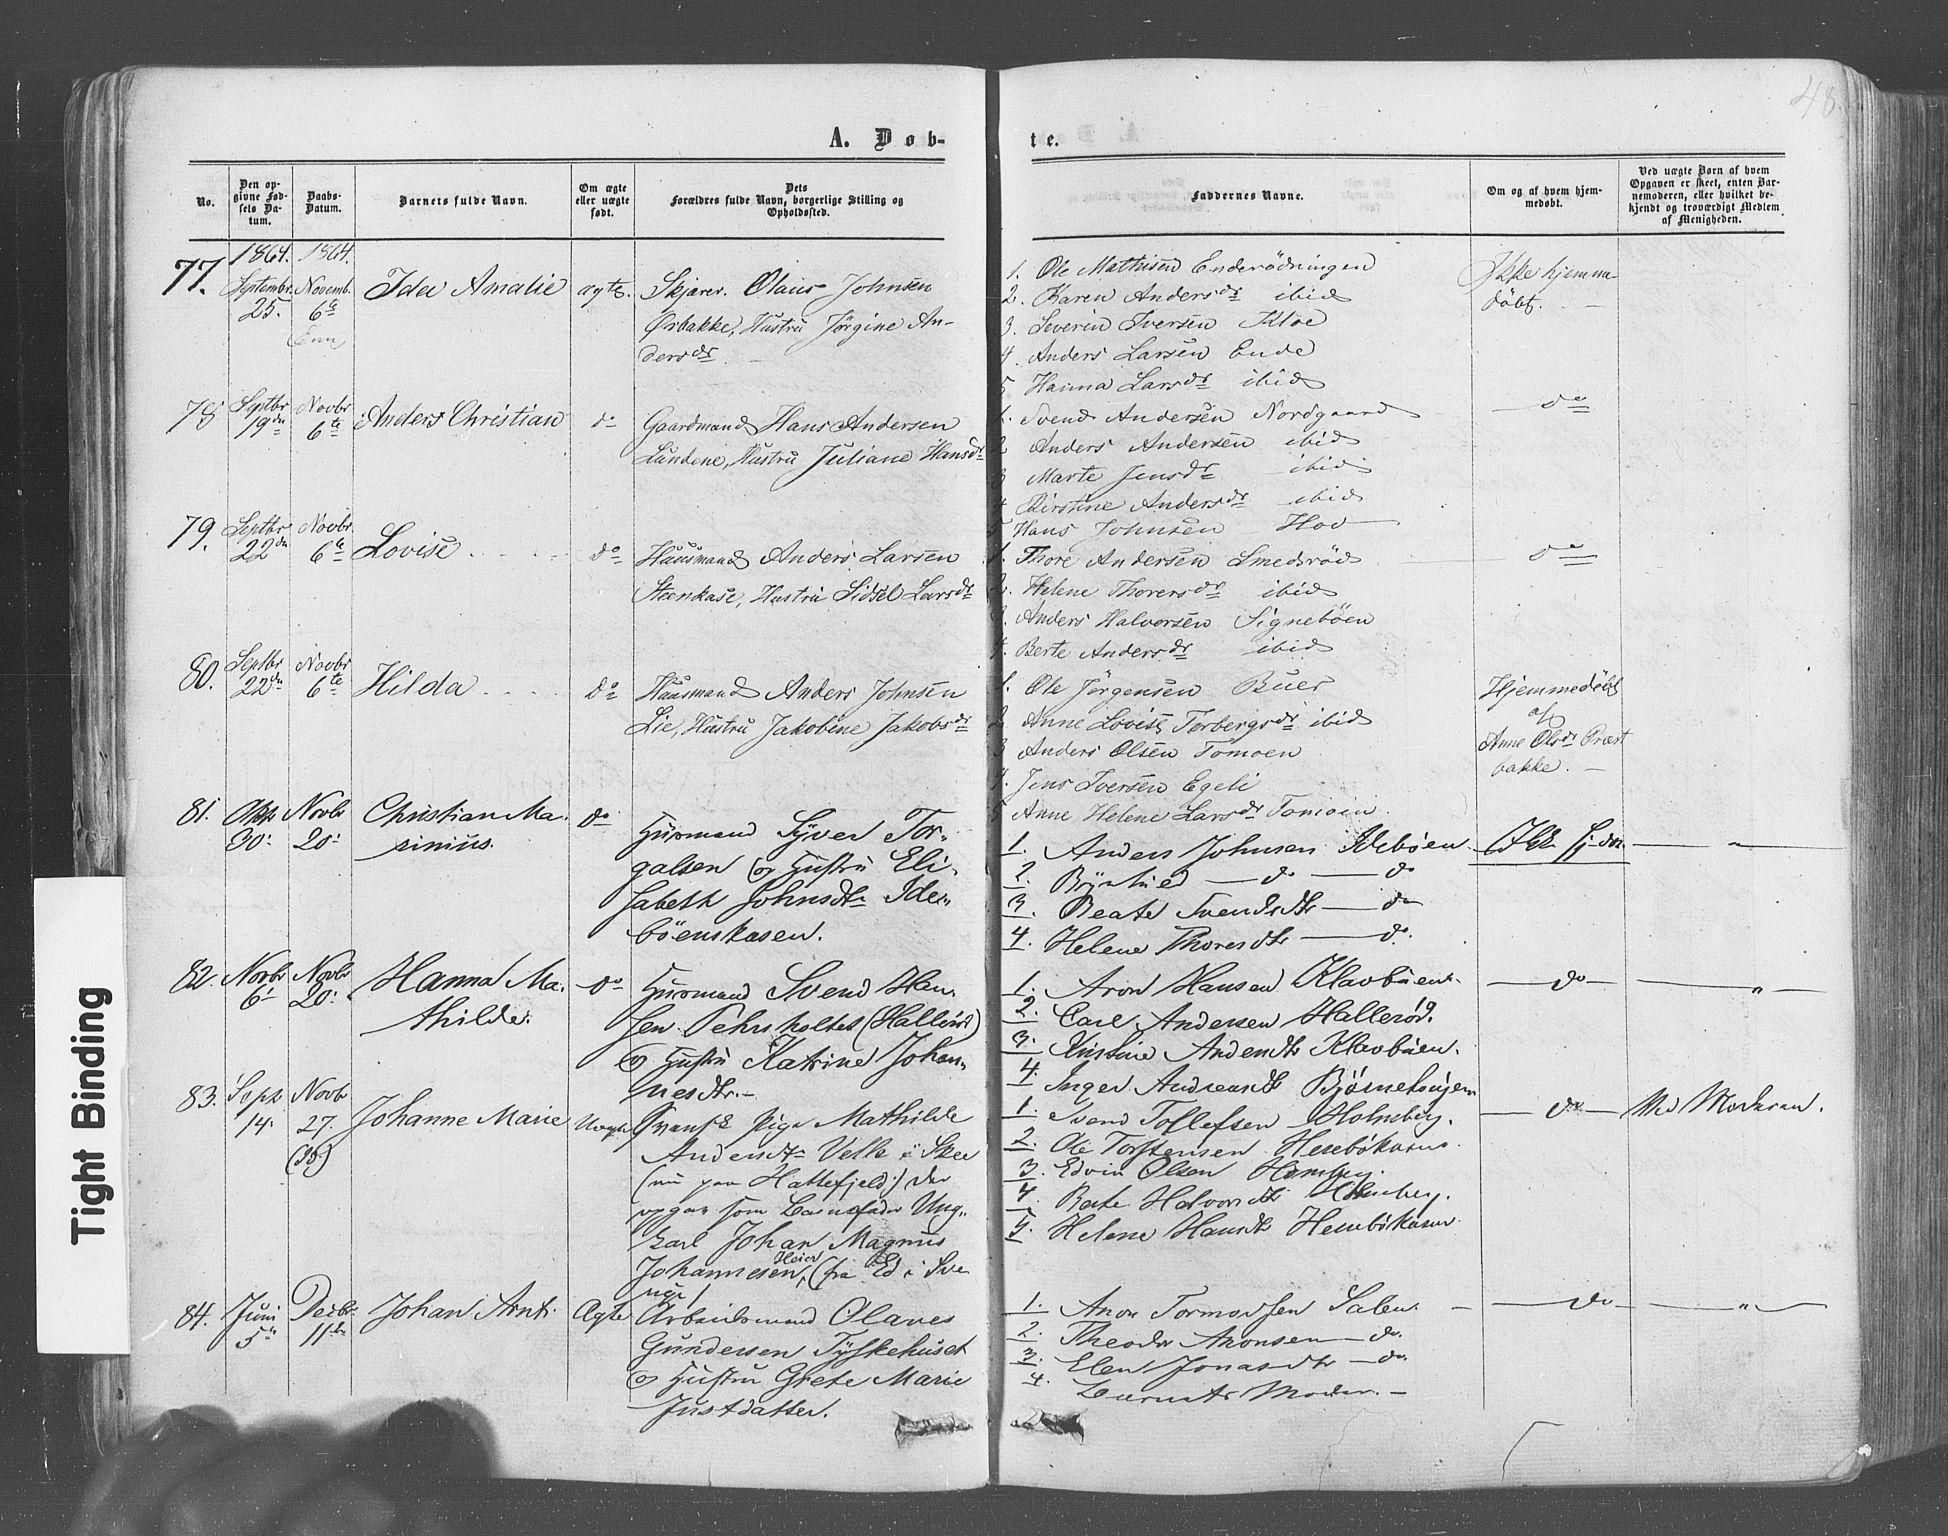 48.
A. Døb-
te.
No.
Den op-
givne Fød-
sels Da-
tum.
Daabs-
Datum.
Barnets fulde Navn.
Om ægte
eller uægte
født.
Dets
Forældres fulde Navn, borgerlige Stilling og
Opholdssted.
Faddernes Navne.
Om og af hvem hjem-
medøbt.
Ved uægte Børn af hvem
Opgaven er skeet, enten Bar-
nemoderen, eller hvilket be-
kjendt og troværdigt Medlem
af Menigheden.
1864. 1864.
77.
Septembr
25.
Novemb.
6te
Ida Amalie
ægte.
Skjærer. Olaus Johnsen
Ørbakke, Hustru Jörgine An-
dersdr
1. Ole Mathisen Enderödningen
2. Karen Andersdr ibid
3. Severin Iversen Kloe
4. Anders Larsen Ende
5 Hanna Larsdr ibid
Ikke hjemme-
döbt.
78
Septbr
19de
Novbr
6te
Anders Christian
do
Gaardmand Hans Andersen
Lundene, Hustru Juliane Hansdr
1. Svend Andersen Nordgaard
2 Anders Andersen ibid
3 Marte Jensdr ibid
4 Kirstine Andersdr ibid
5 Hans Johnsen Hov
do
79.
Septbr
22de
Novbr.
6te
Lovise
do
Huusmand Anders Larsen
Steenkase, Hustru Sidsel Larsdr
1. Thore Andersen Smedsröd
2. Helene Thoresdr ibid
3. Anders Halvorsen Signeböen
4. Berte Andersdr ibid
do
80.
Septbr
22de
Novbr
6te
Hilda
do
Huusmand Anders Johnsen
Lie, Hustru Jakobine Jakobsdr
1. Ole Jörgensen Buer
2 Anne Lovise Torbergsdr ibid
3 Anders Olsen Tomoen
4. Jens Iversen Egeli
5 Anne Helene Larsdr Tomoen
Hjemmedöbt
af
Anne Olsdr Præst
bakke.
81.
30.
Novbr
20.
Christian Ma-
rinius.
do
Husmand Syver Tor-
galsen og Hustru Eli-
sabeth Johnsdtr Ide-
böenskasen.
1. Anders Johnsen Ideböen
2. do do
3. Beate Svendsdtr do
4. Helene Thoresdtr do.
82.
Novbr
6.
Novbr
20.
Hanna Ma-
thilde.
do
Husmand Svend Han-
sen (Halleröd)
og Hustru Katrine Johan-
nesdtr.
1. Aron Hansen Klavböen.
2. Carl Andersen Halleröd.
3. Kristine Andersdtr Klavböen.
4. Inger Andreasdtr
do
83.
Sept.
14.
Novbr
27.
Johanne Marie
Uægte
Svensk Pige Mathilde
Andersdtr Velle i Skee
(nu paa Hattefjeld) der
opgav som Barnefader Ung-
karl Johan Magnus
Heier
Johannesen, (fra Ed i Sve
rige)
1. Svend Tollefsen Holmberg.
2. Ole Torstensen Heseböskasen.
3. Edvin Olsen Holmberg.
4. Berte Halvorsdtr Holmberg.
5. Helene Hansdtr Heseböskasen.
do
Ved Moderen.
84.
Juni
5te
Decbr.
11te
Johan Arnt.
Ægte
Arbeidsmand Olaves
Gundersen Tyskehuset
og Hustru Grete Marie
Justdatter.
1. Aron Tormodsen Salen.
2. Theodor Aronsen do.
3. Elen Jonasdtr do.
4. Barnets Moder.
do
Tight Binding